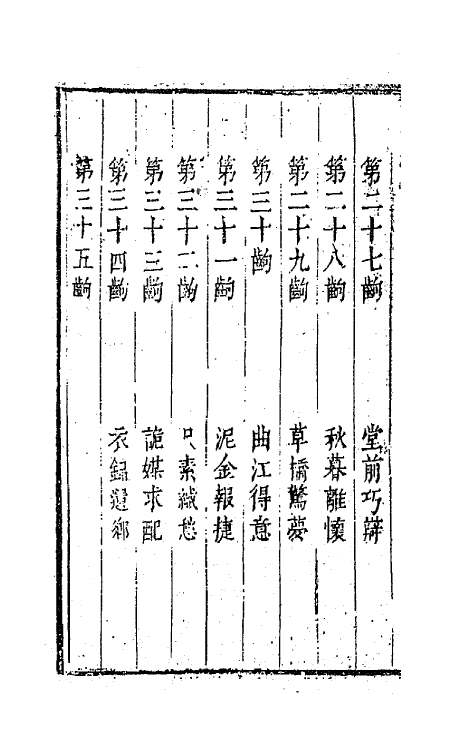 第二十七齣 堂前巧辯
第二十八齣 秋暮離懷
第二十九齣 草橋驚夢
第三十齣 曲江得意
第三十一齣 泥金報捷
第三十二齣 尺素緘愁
第三十三齣 詭媒求配
第三十四齣 衣錦還鄉
第三十五齣